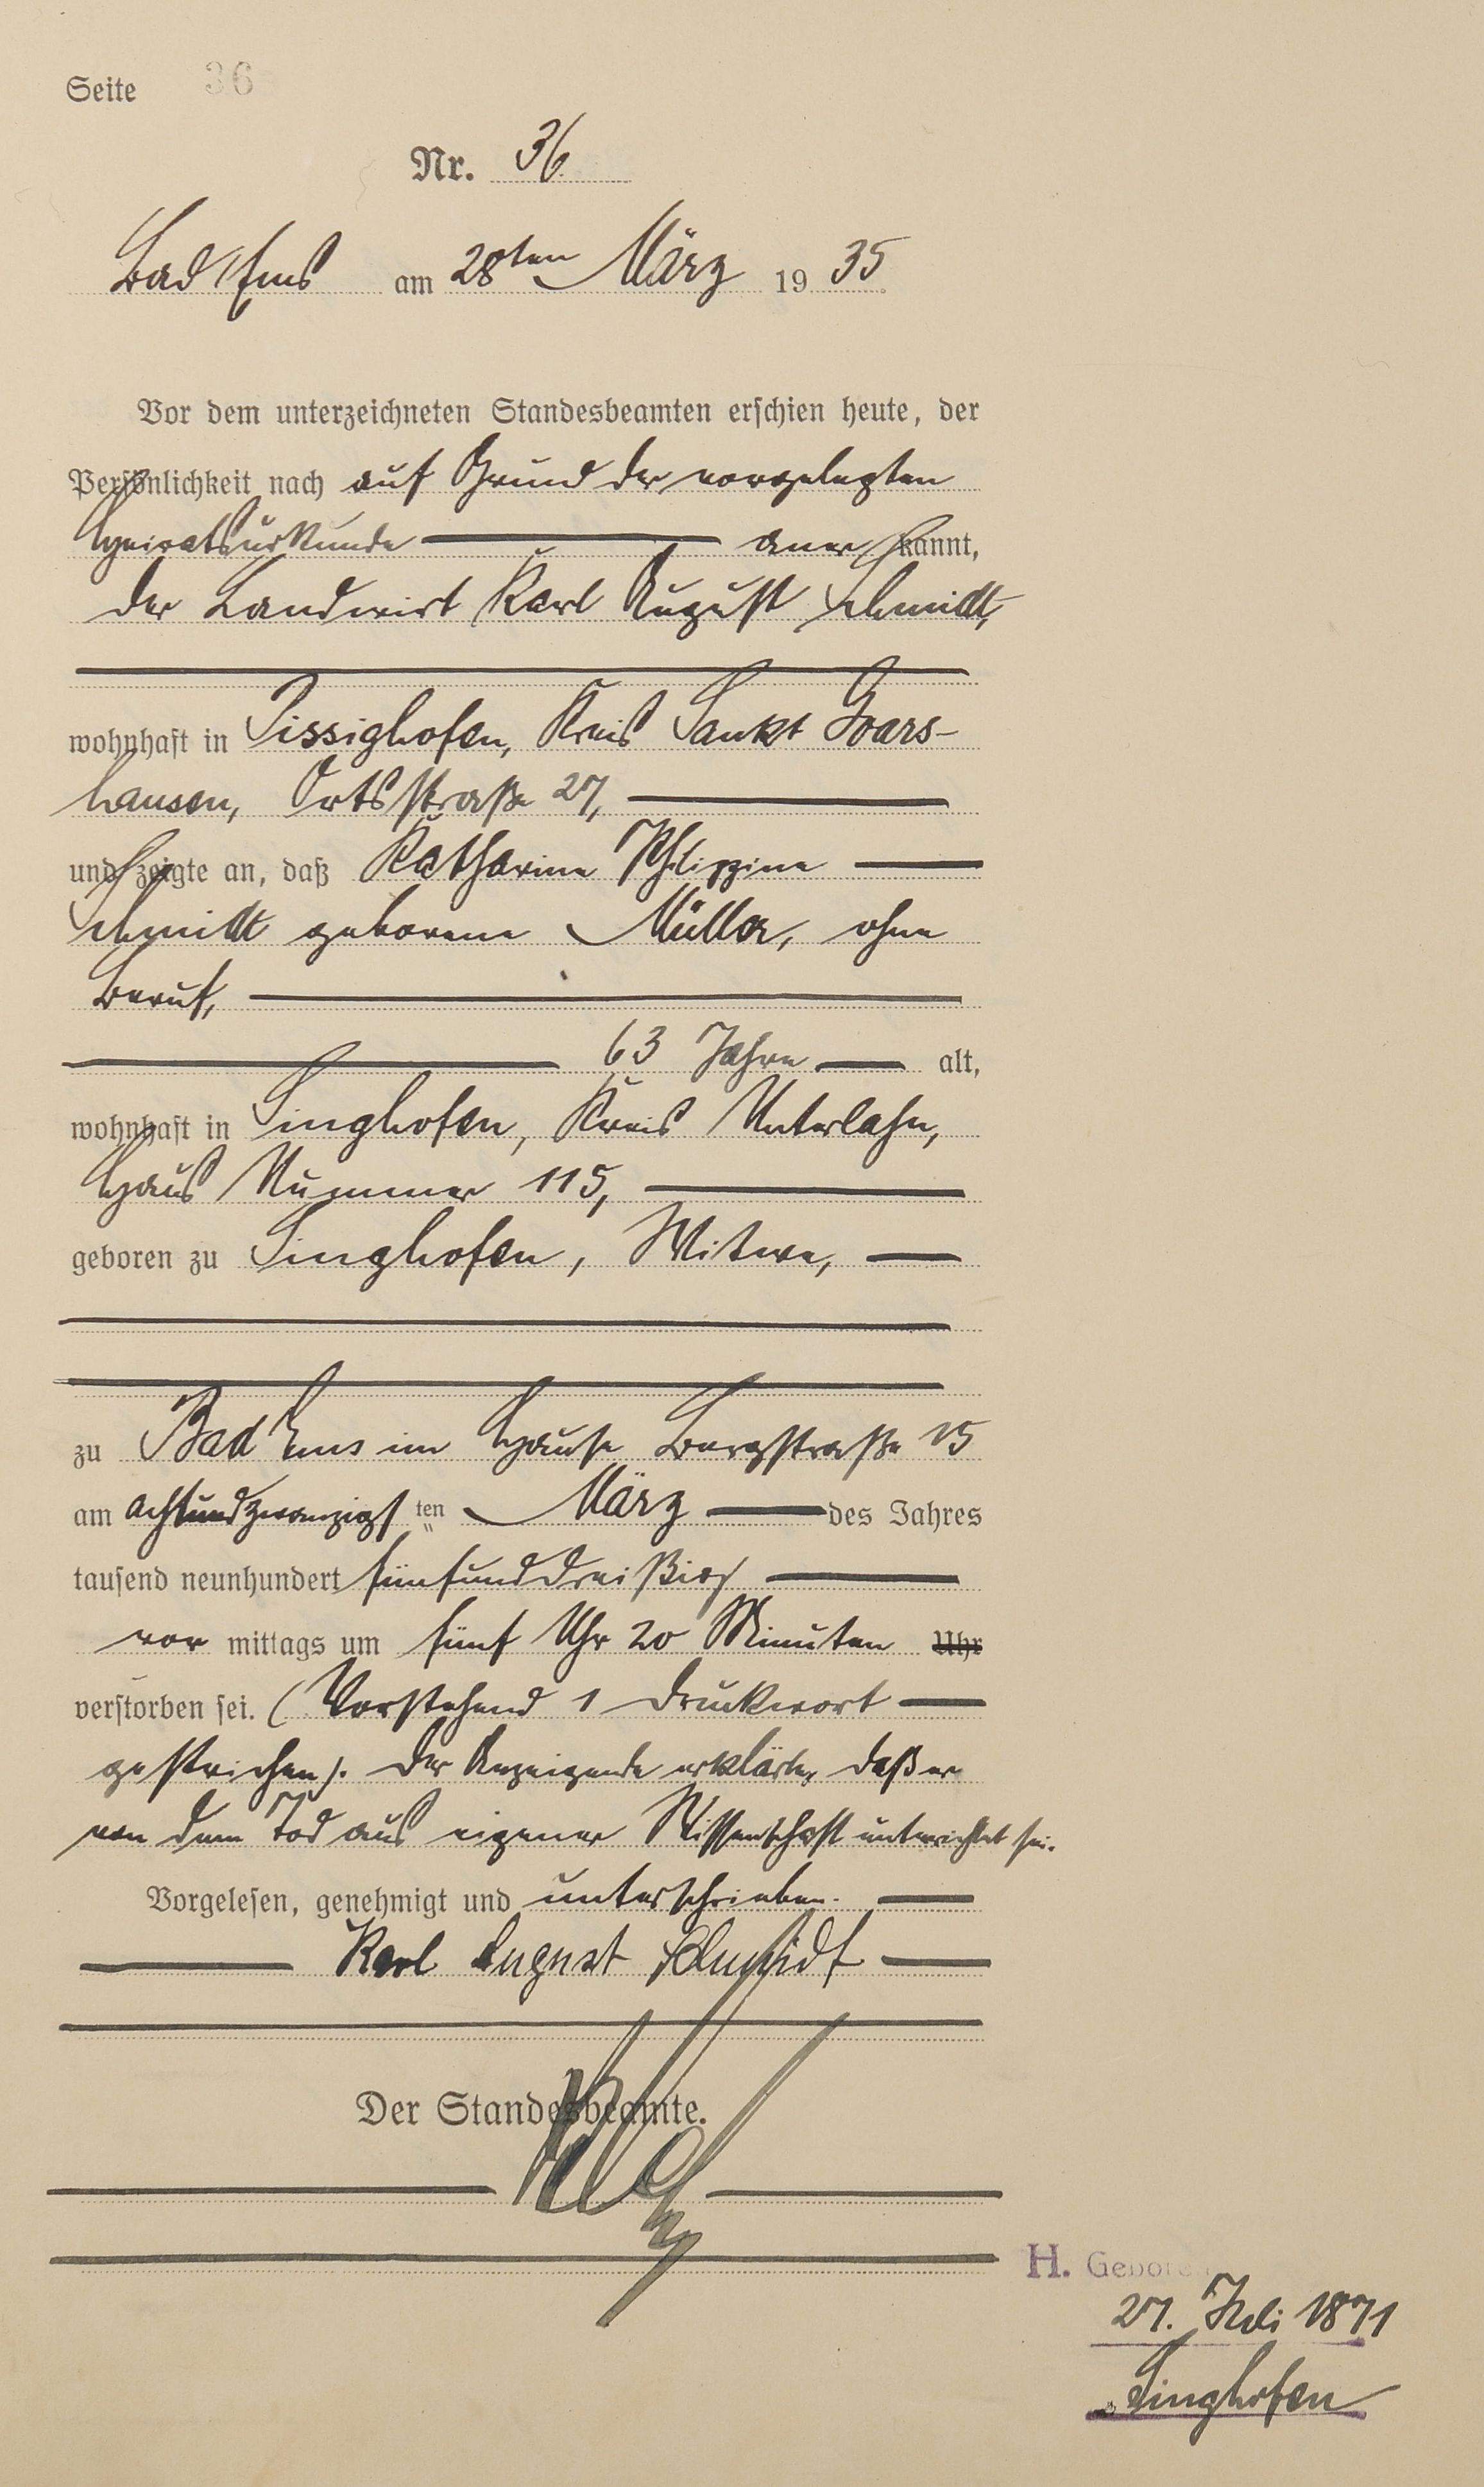 Seite 36
Nr. 36
Bad Ems am 28ten März 1935
Vor dem unterzeichneten Standesbeamten erschien heute, der
Persönlichkeit nach auf Grund der vorgelegten
Heiratsurkunde aner kannt,
der Landwirt Karl August Schmidt,
wohnhaft in Lissighofen, Kreis Sankt Goars-
hausen, Ortsstraße 27,
und zeigte an, daß Katharine Philippine
Schmidt geborene Müller, ohne
Beruf,
63 Jahre alt,
wohnhaft in Singhofen, Kreis Unterlahn,
Haus Nummer 115,
geboren zu Singhofen, Witwe,
zu Bad Ems im Hause Bergstraße 15
am achtundzwanzigsten März des Jahres
tausend neunhundert fünfunddreißig
vor mittags um fünf Uhr 20 Minuten Uhr
verstorben sei. (Vorstehend 1 Druckwort
gestrichen). Der Anzeigende erklärte, daß er
von dem Tod aus eigener Wissenschaft unterrichtet sei.
Vorgelesen, genehmigt und unterschrieben.
Karl August Schmidt
Der Standesbeamte.
H. Geboren
27. Juli 1871
Singhofen